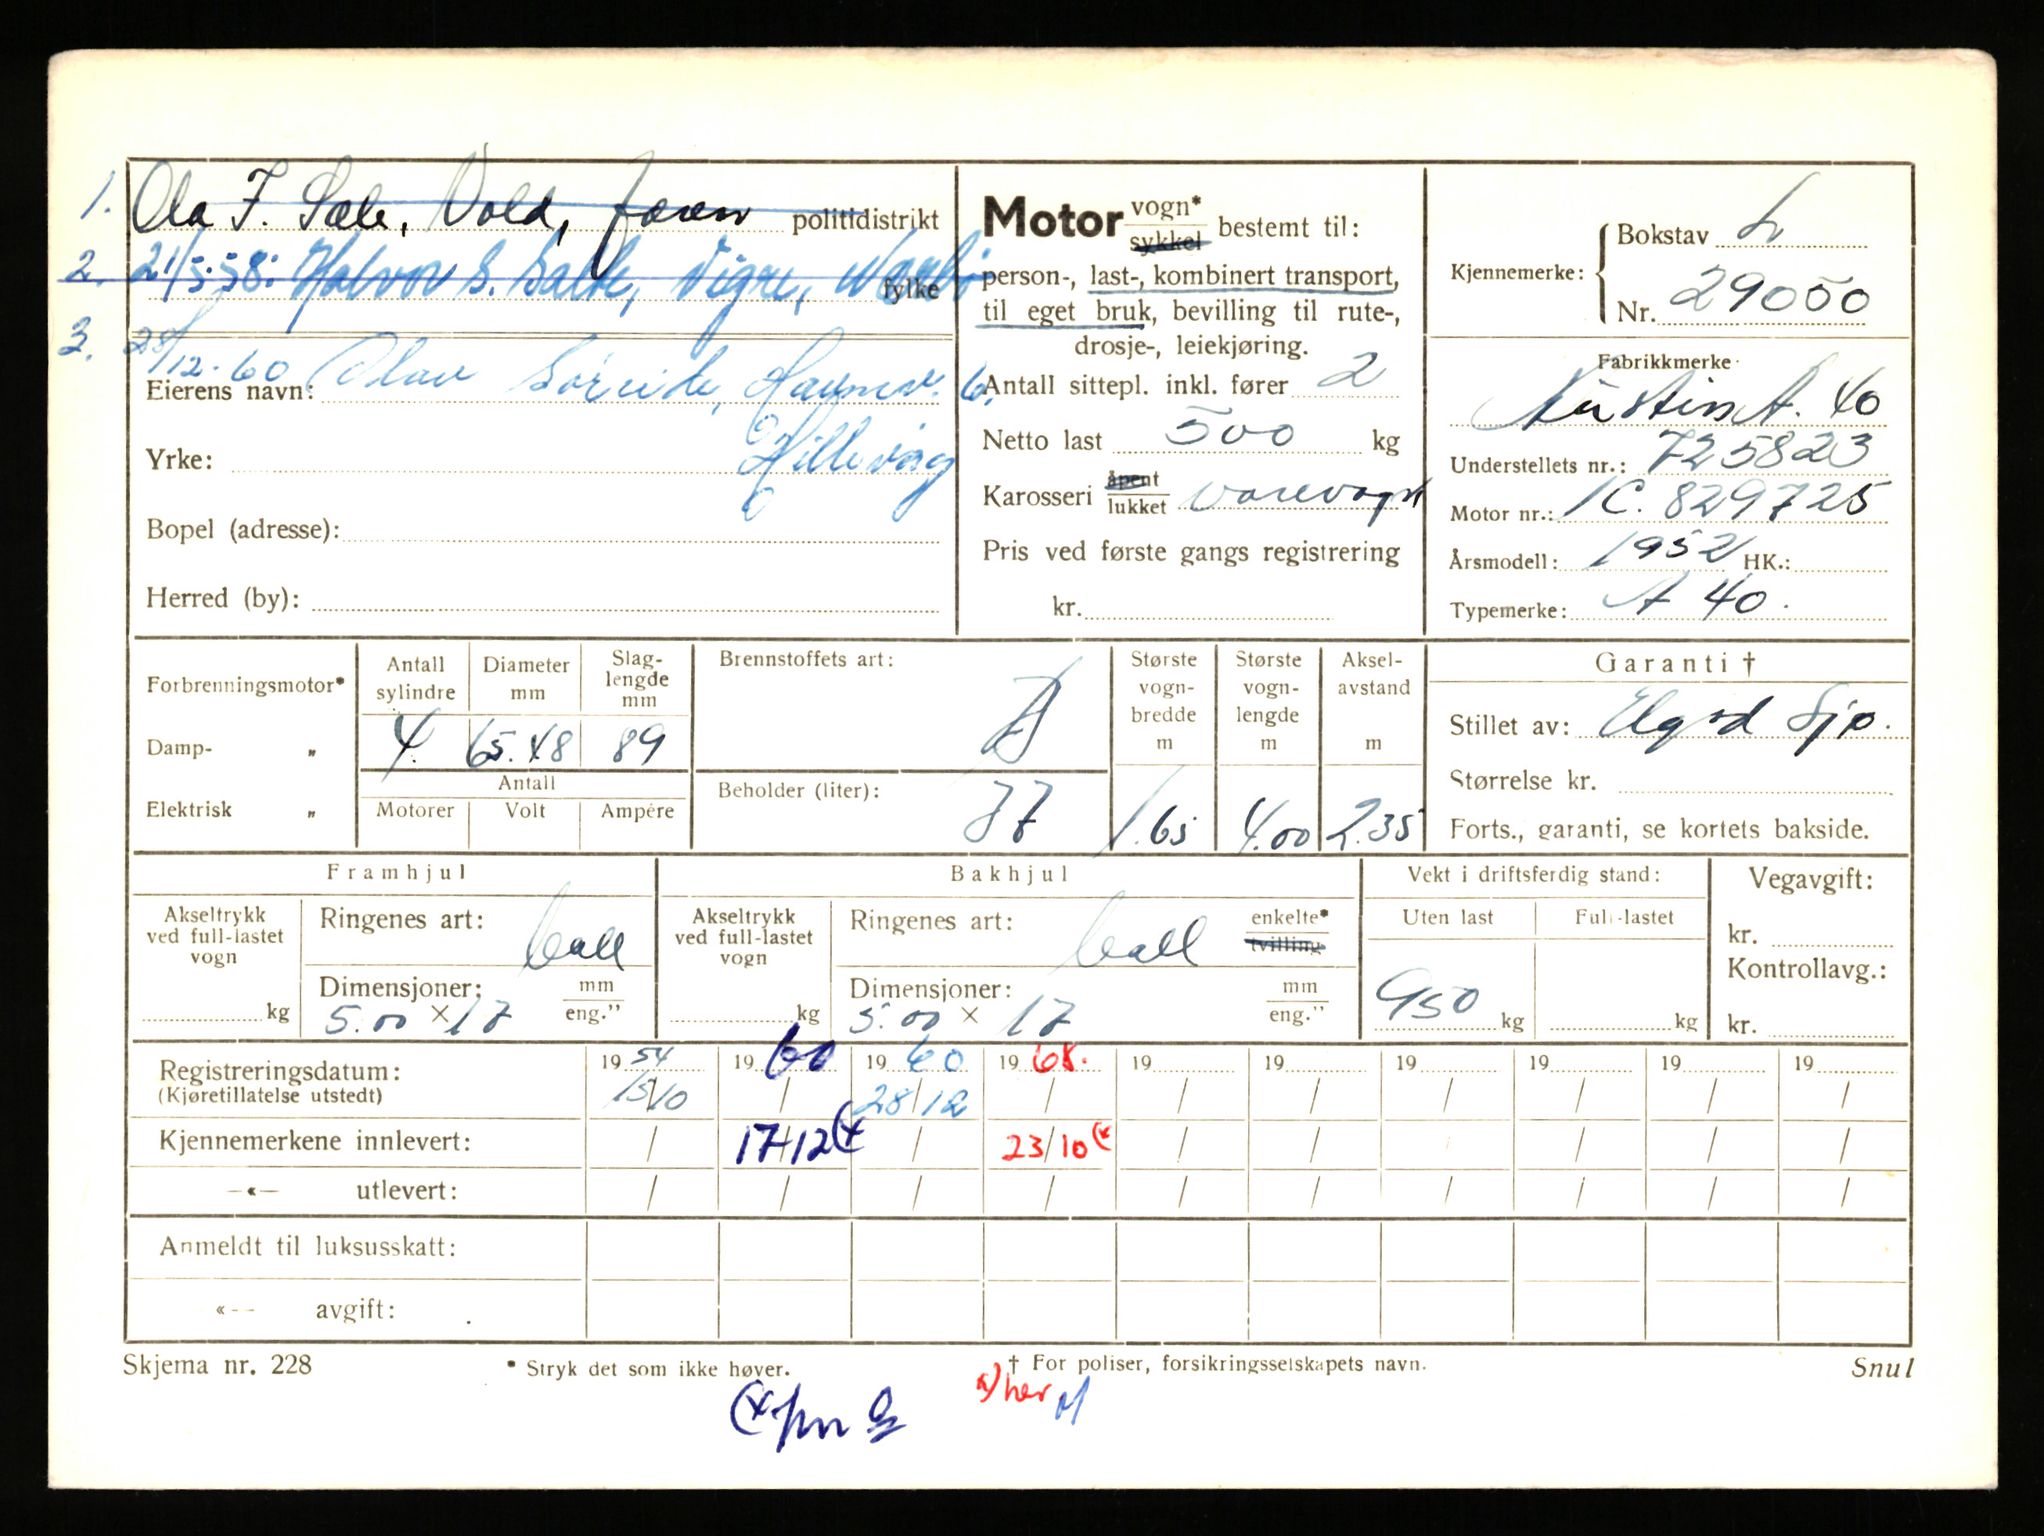 1. Ola F. Sæle, Vold, Jæren politidistrikt
2. 21/5.58: Halvor S. Salte, Vigre, Nærbø fylke
3. 28/12-60 Olav Söreide, Haumv. 6.
Eierens navn:
Hillevåg
Yrke:
Bopel (adresse):
Herred (by):
Motor vogn* sykkel bestemt til:
person-, last-, kombinert transport,
til eget bruk, bevilling til rute-,
drosje-, leiekjøring.
Antall sittepl. inkl. fører 2
Netto last 500 kg
Karosseri åpent lukket varevogn
Pris ved første gangs registrering
kr.
Kjennemerke: Bokstav L
Nr. 29050
Fabrikkmerke
Austin A. 40
Understellets nr.: 725823
Motor nr.: 1C. 829725
Årsmodell: 1952 HK.:
Typemerke: A 40.
Forbrenningsmotor*
Damp- „
Elektrisk „
Antall sylindre 4.
Diameter mm 65.48
Slag-lengde mm 89
Antall
Motorer Volt Ampére
Brennstoffets art: B
Beholder (liter): 37
Største vogn-bredde m 1.65
Største vogn-lengde m 4.00
Aksel-avstand m 2.35
Garanti †
Stillet av: Elgod Sjo.
Størrelse kr.
Forts., garanti, se kortets bakside.
Framhjul
Akseltrykk ved full-lastet vogn kg
Ringenes art: ball
Dimensjoner: mm eng."
5.00 x 17
Bakhjul
Akseltrykk ved full-lastet vogn kg
Ringenes art: ball enkelte* tvilling
Dimensjoner: mm eng."
5.00 x 17
Vekt i driftsferdig stand:
Uten last Full-lastet
950 kg kg
Vegavgift:
kr.
Kontrollavg.:
kr.
Registreringsdatum: 19 54 19 60 19 60 19 68. 19 19 19 19 19 19
(Kjøretillatelse utstedt) 15/10 / 28/12 / / / / / / /
Kjennemerkene innlevert: / 17/12 (x / 23/10 (x / / / / /
—«— utlevert: / / / / / / / / / /
Anmeldt til luksusskatt:
«-- avgift:
Skjema nr. 228 * Stryk det som ikke høver. † For poliser, forsikringsselskapets navn. Snul
x) her